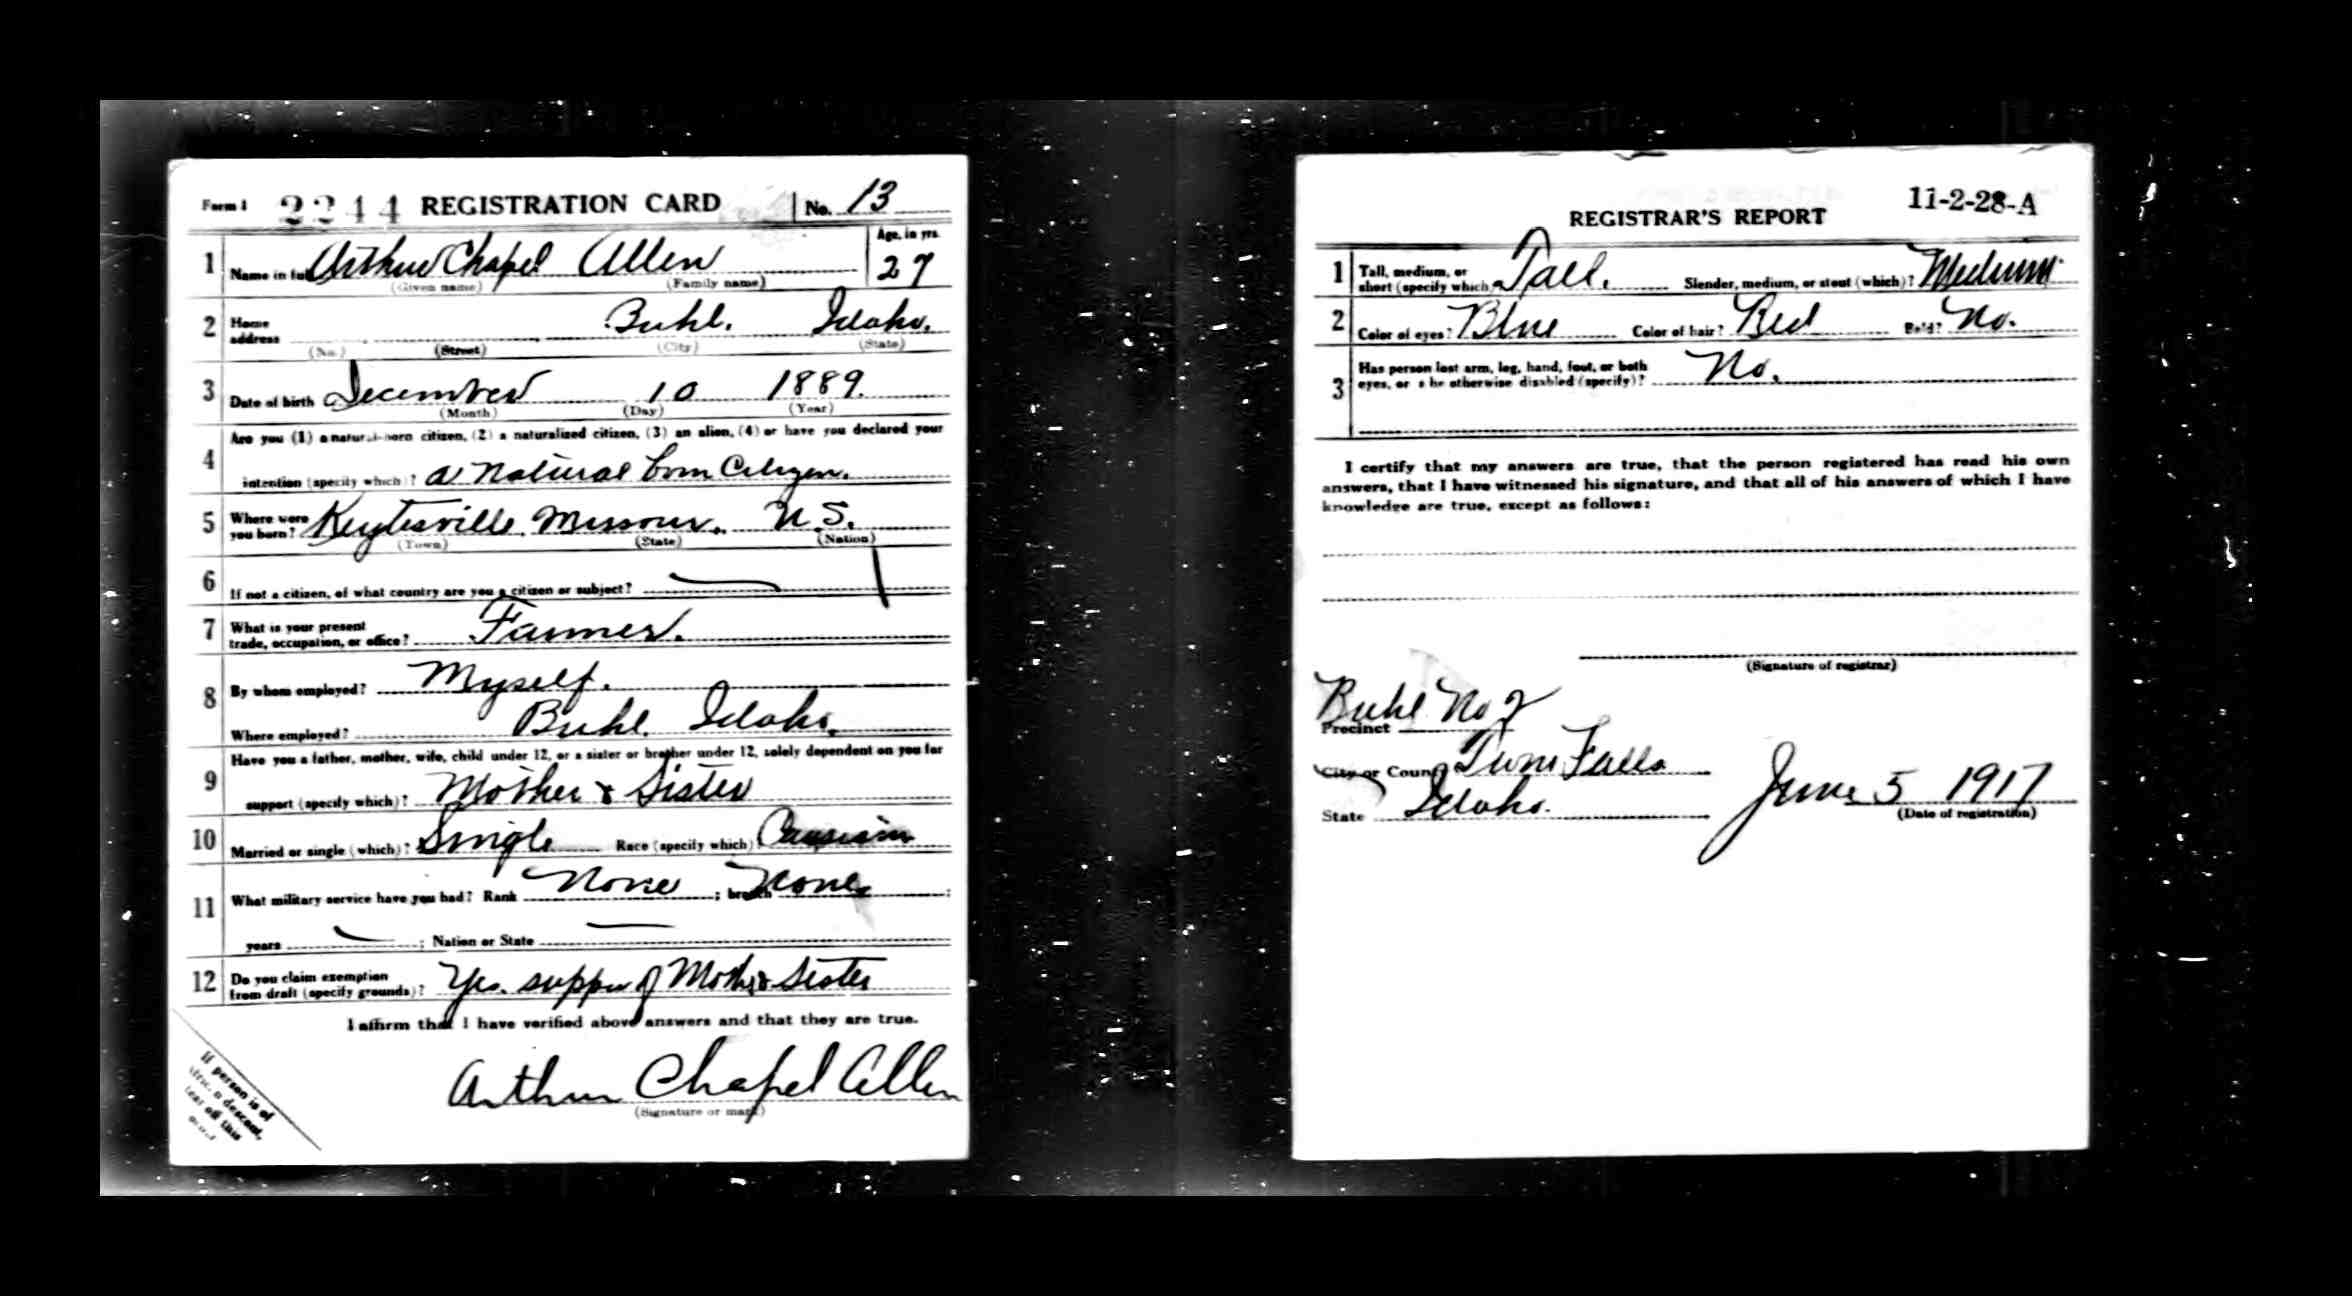 Form 1 2244 REGISTRATION CARD No. 13
1 Name in full Arthur Chapel Allen Age, in yrs. 27
(Given name) (Family name)
2 Home address Buhl. Idaho.
(No.) (Street) (City) (State)
3 Date of birth December 10 1889.
(Month) (Day) (Year)
4 Are you (1) a natural-born citizen, (2) a naturalized citizen, (3) an alien, (4) or have you declared your
intention (specify which)? a natural born Citizen.
5 Where were you born? Keytesville, Missouri, U.S.
(Town) (State) (Nation)
6 If not a citizen, of what country are you a citizen or subject?
7 What is your present trade, occupation, or office? Farmer.
8 By whom employed? Myself.
Where employed? Buhl. Idaho.
9 Have you a father, mother, wife, child under 12, or a sister or brother under 12, solely dependent on you for
support (specify which)? Mother & Sister
10 Married or single (which)? Single Race (specify which)?
11 What military service have you had? Rank None ; branch None ;
years ; Nation or State
12 Do you claim exemption from draft (specify grounds)? Yes. support of Mother & Sister
I affirm that I have verified above answers and that they are true.
Arthur Chapel Allen
(Signature or mark)
If person is of
descent,
tear off this
REGISTRAR'S REPORT 11-2-28-A
1 Tall, medium, or short (specify which)? Tall. Slender, medium, or stout (which)? Medium
2 Color of eyes? Blue Color of hair? Red Bald? No.
3 Has person lost arm, leg, hand, foot, or both
eyes, or is he otherwise disabled (specify)? No.
I certify that my answers are true, that the person registered has read his own
answers, that I have witnessed his signature, and that all of his answers of which I have
knowledge are true, except as follows:
(Signature of registrar)
Precinct Buhl No 2
City or County Twin Falls
State Idaho. June 5 1917
(Date of registration)